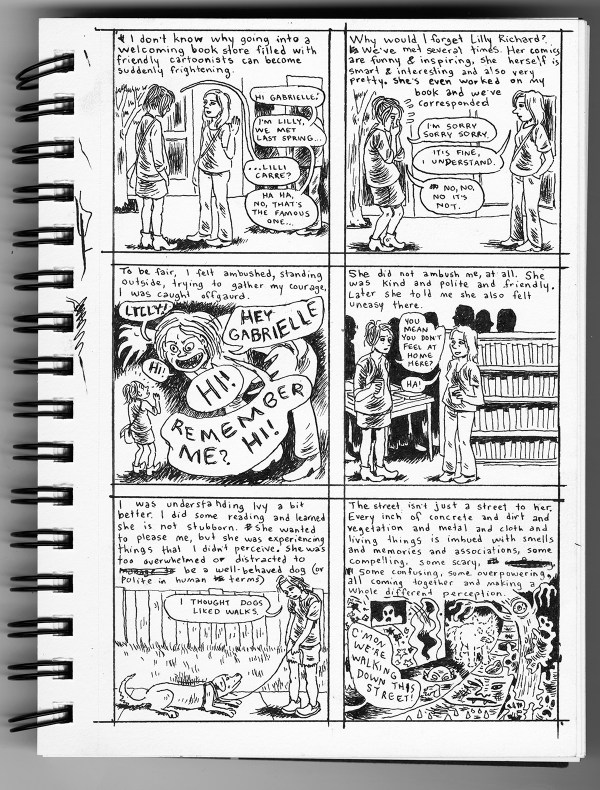 I don't know why going into a
welcoming book store filled with
friendly cartoonists can become
suddenly frightening.
HI GABRIELLE!
I'M LILLY,
WE MET
LAST SPRING...
...LILLI
CARRE?
HA HA,
NO, THAT'S
THE FAMOUS
ONE...
Why would I forget Lilly Richard?
We've met several times. Her comics
are funny & inspiring, she herself is
smart & interesting and also very
pretty. She's even worked on my
book and we've
corresponded
I'M SORRY
SORRY SORRY.
IT'S FINE,
I UNDERSTAND.
NO, NO,
NO IT'S
NOT.
To be fair, I felt ambushed, standing
outside, trying to gather my courage,
I was caught offgaurd.
LILLY!
HEY
GABRIELLE
HI!
HI!
REMEMBER
ME? HI!
She did not ambush me, at all. She
was kind and polite and friendly.
Later she told me she also felt
uneasy there.
YOU
MEAN
YOU DON'T
FEEL AT
HOME
HERE?
HA!
I was understanding Ivy a bit
better. I did some reading and learned
she is not stubborn. She wanted
to please me, but she was experiencing
things that I didn't perceive. She was
too overwhelmed or distracted to
be a well-behaved dog (or
polite in human terms)
I THOUGHT DOGS
LIKED WALKS.
The street isn't just a street to her.
Every inch of concrete and dirt and
vegetation and metal and cloth and
living things is imbued with smells
and memories and associations, some
compelling, some scary,
some confusing, some overpowering,
all coming together and making a
whole different perception.
C'MON
WE'RE
WALKING
DOWN THIS
STREET!